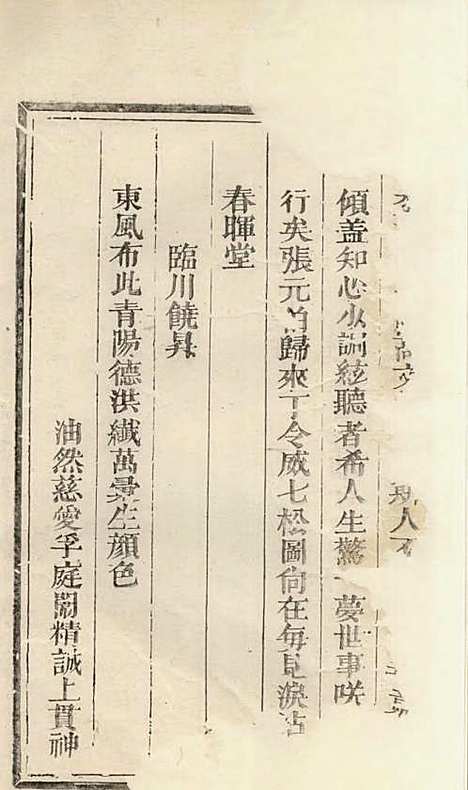 傾盖知心少調絃聽者希人生驚一夢世事咲
行矣張元伯歸來丁令威七松圖尙在每見淚沾
春暉堂
臨川饒昇
東風布此青陽德洪纖萬彙生顔色
油然慈愛孚庭闈精誠上貫神